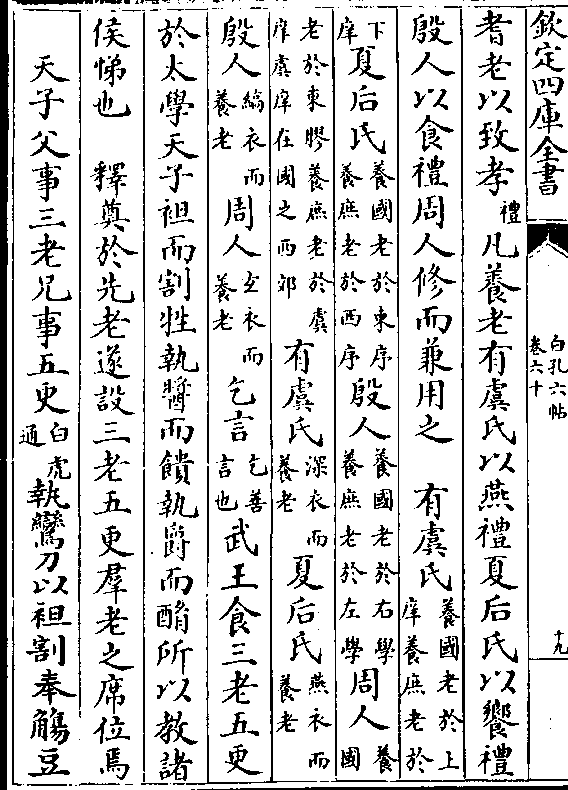 欽定四庫全書
白孔六帖
卷六十
十九
耆老以致孝禮凡養老有虞氏以燕禮夏后氏以饗禮
殷人以食禮周人修而兼用之　有虞氏養國老於上庠養庶老於
下庠夏后氏養國老於東序養庶老於西序殷人養國老於右學養庶老於左學周人養國
老於東膠養庶老於虞庠虞庠在國之西郊有虞氏深衣而養老夏后氏燕衣而養老
殷人縞衣而養老周人玄衣而養老乞言乞善言也武王食三老五更
於太學天子袒而割牲執醬而饋執爵而酳所以教諸
侯悌也　釋奠於先老遂設三老五更羣老之席位焉
天子父事三老兄事五更白虎通執鸞刀以袒割奉觴豆